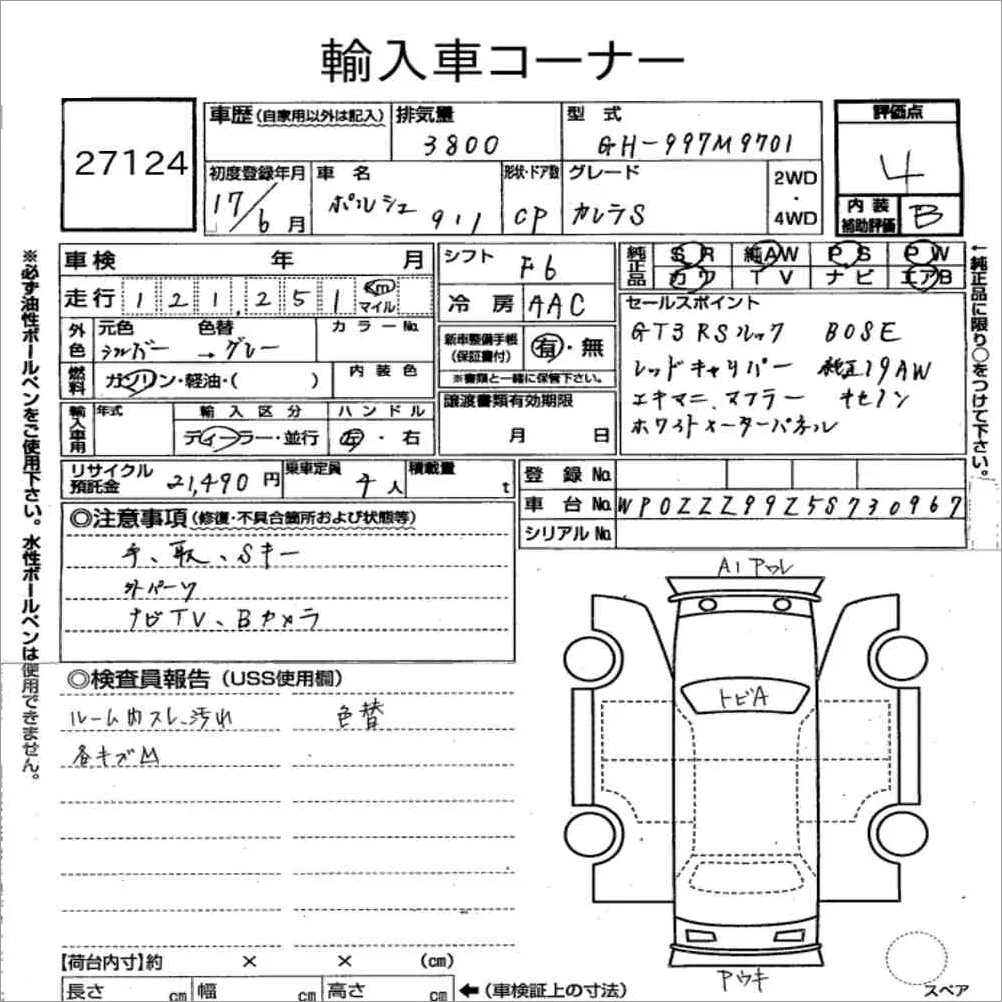 輸入車コーナー
27124
車歴 (自家用以外は記入)
排気量
3800
型式
GH-997M9701
評価点
4
内装
補助評価
B
初度登録年月
17/6月
車名
ポルシェ 911
形状・ドア数
CP
グレード
カレラS
2WD
・
4WD
車検 年 月
走行 121,251 km
マイル
外色
元色 色替
シルバー → グレー
カラーNo.
燃料
ガソリン・軽油・( )
内装色
輸入車用
年式
輸入区分
ディーラー・並行
ハンドル
左・右
シフト
F6
冷房
AAC
新車整備手帳
(保証書付)
有・無
※書類と一緒に保管下さい。
譲渡書類有効期限
月 日
純正品
SR 純AW PS PW
カワ TV ナビ エアB
セールスポイント
GT3 RSルック BOSE
レッドキャリパー 純正19AW
エキマニ、マフラー キセノン
ホワイトメーターパネル
←純正品に限り○をつけて下さい。
※必ず油性ボールペンをご使用下さい。水性ボールペンは使用できません。
リサイクル
預託金
21,490円
乗車定員
4人
積載量
t
登録No.
車台No.
WP0ZZZ99Z5S730967
シリアルNo.
◎注意事項 (修復・不具合箇所および状態等)
手、取、Sキー
外パーツ
ナビTV、Bカメラ
◎検査員報告 (USS使用欄)
ルーム内スレ、汚れ 色替
各キズM
A1 アワレ
トビA
アウキ
スペア
【荷台内寸】約 × × (cm)
長さ cm 幅 cm 高さ cm ←(車検証上の寸法)